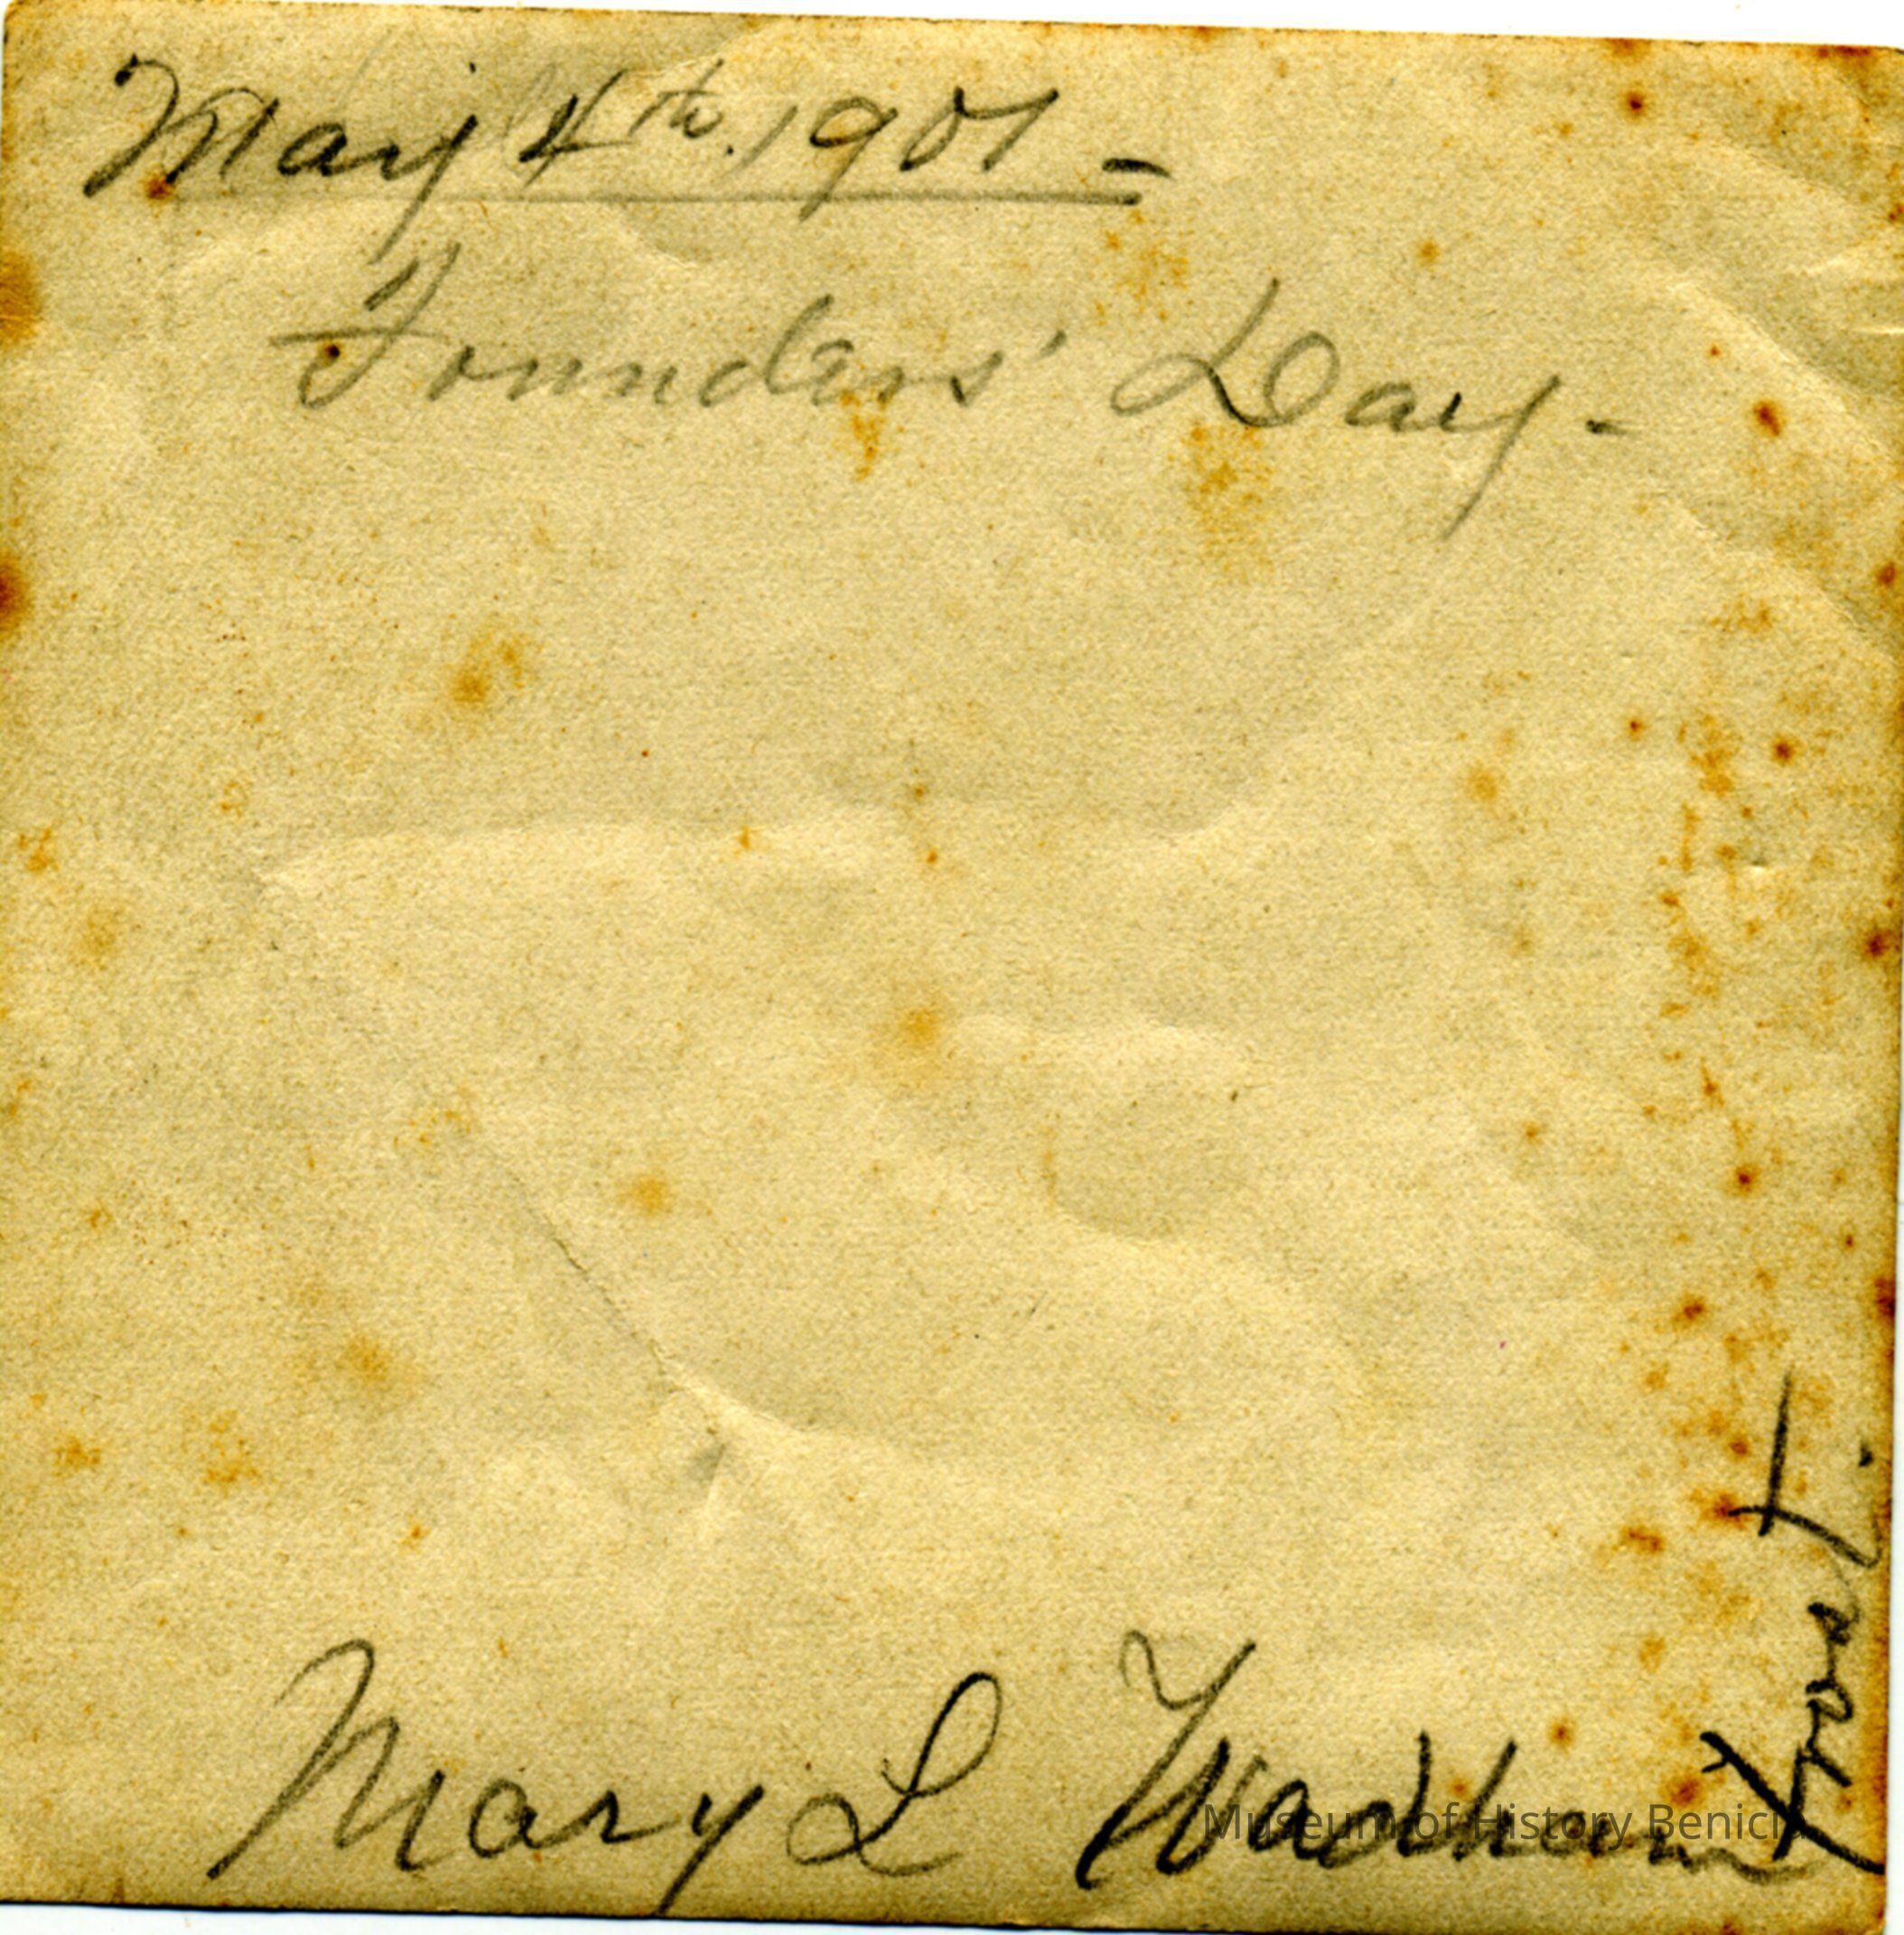 May 4th. 1901 -
Founders' Day.-
Mary L Wadham
Frost.
Museum of History Benicia